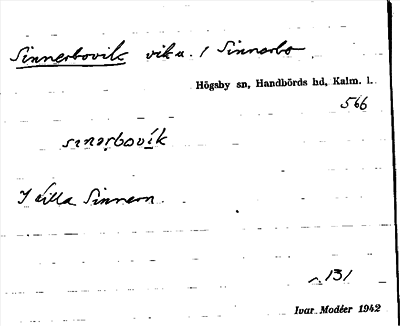 Sinnerbovik vik u. / Sinnerbo
Högsby sn, Handbörds hd, Kalm. l.
566
sɪnərbovík
I Lilla Sinnern.
131
Ivar Modéer 1942